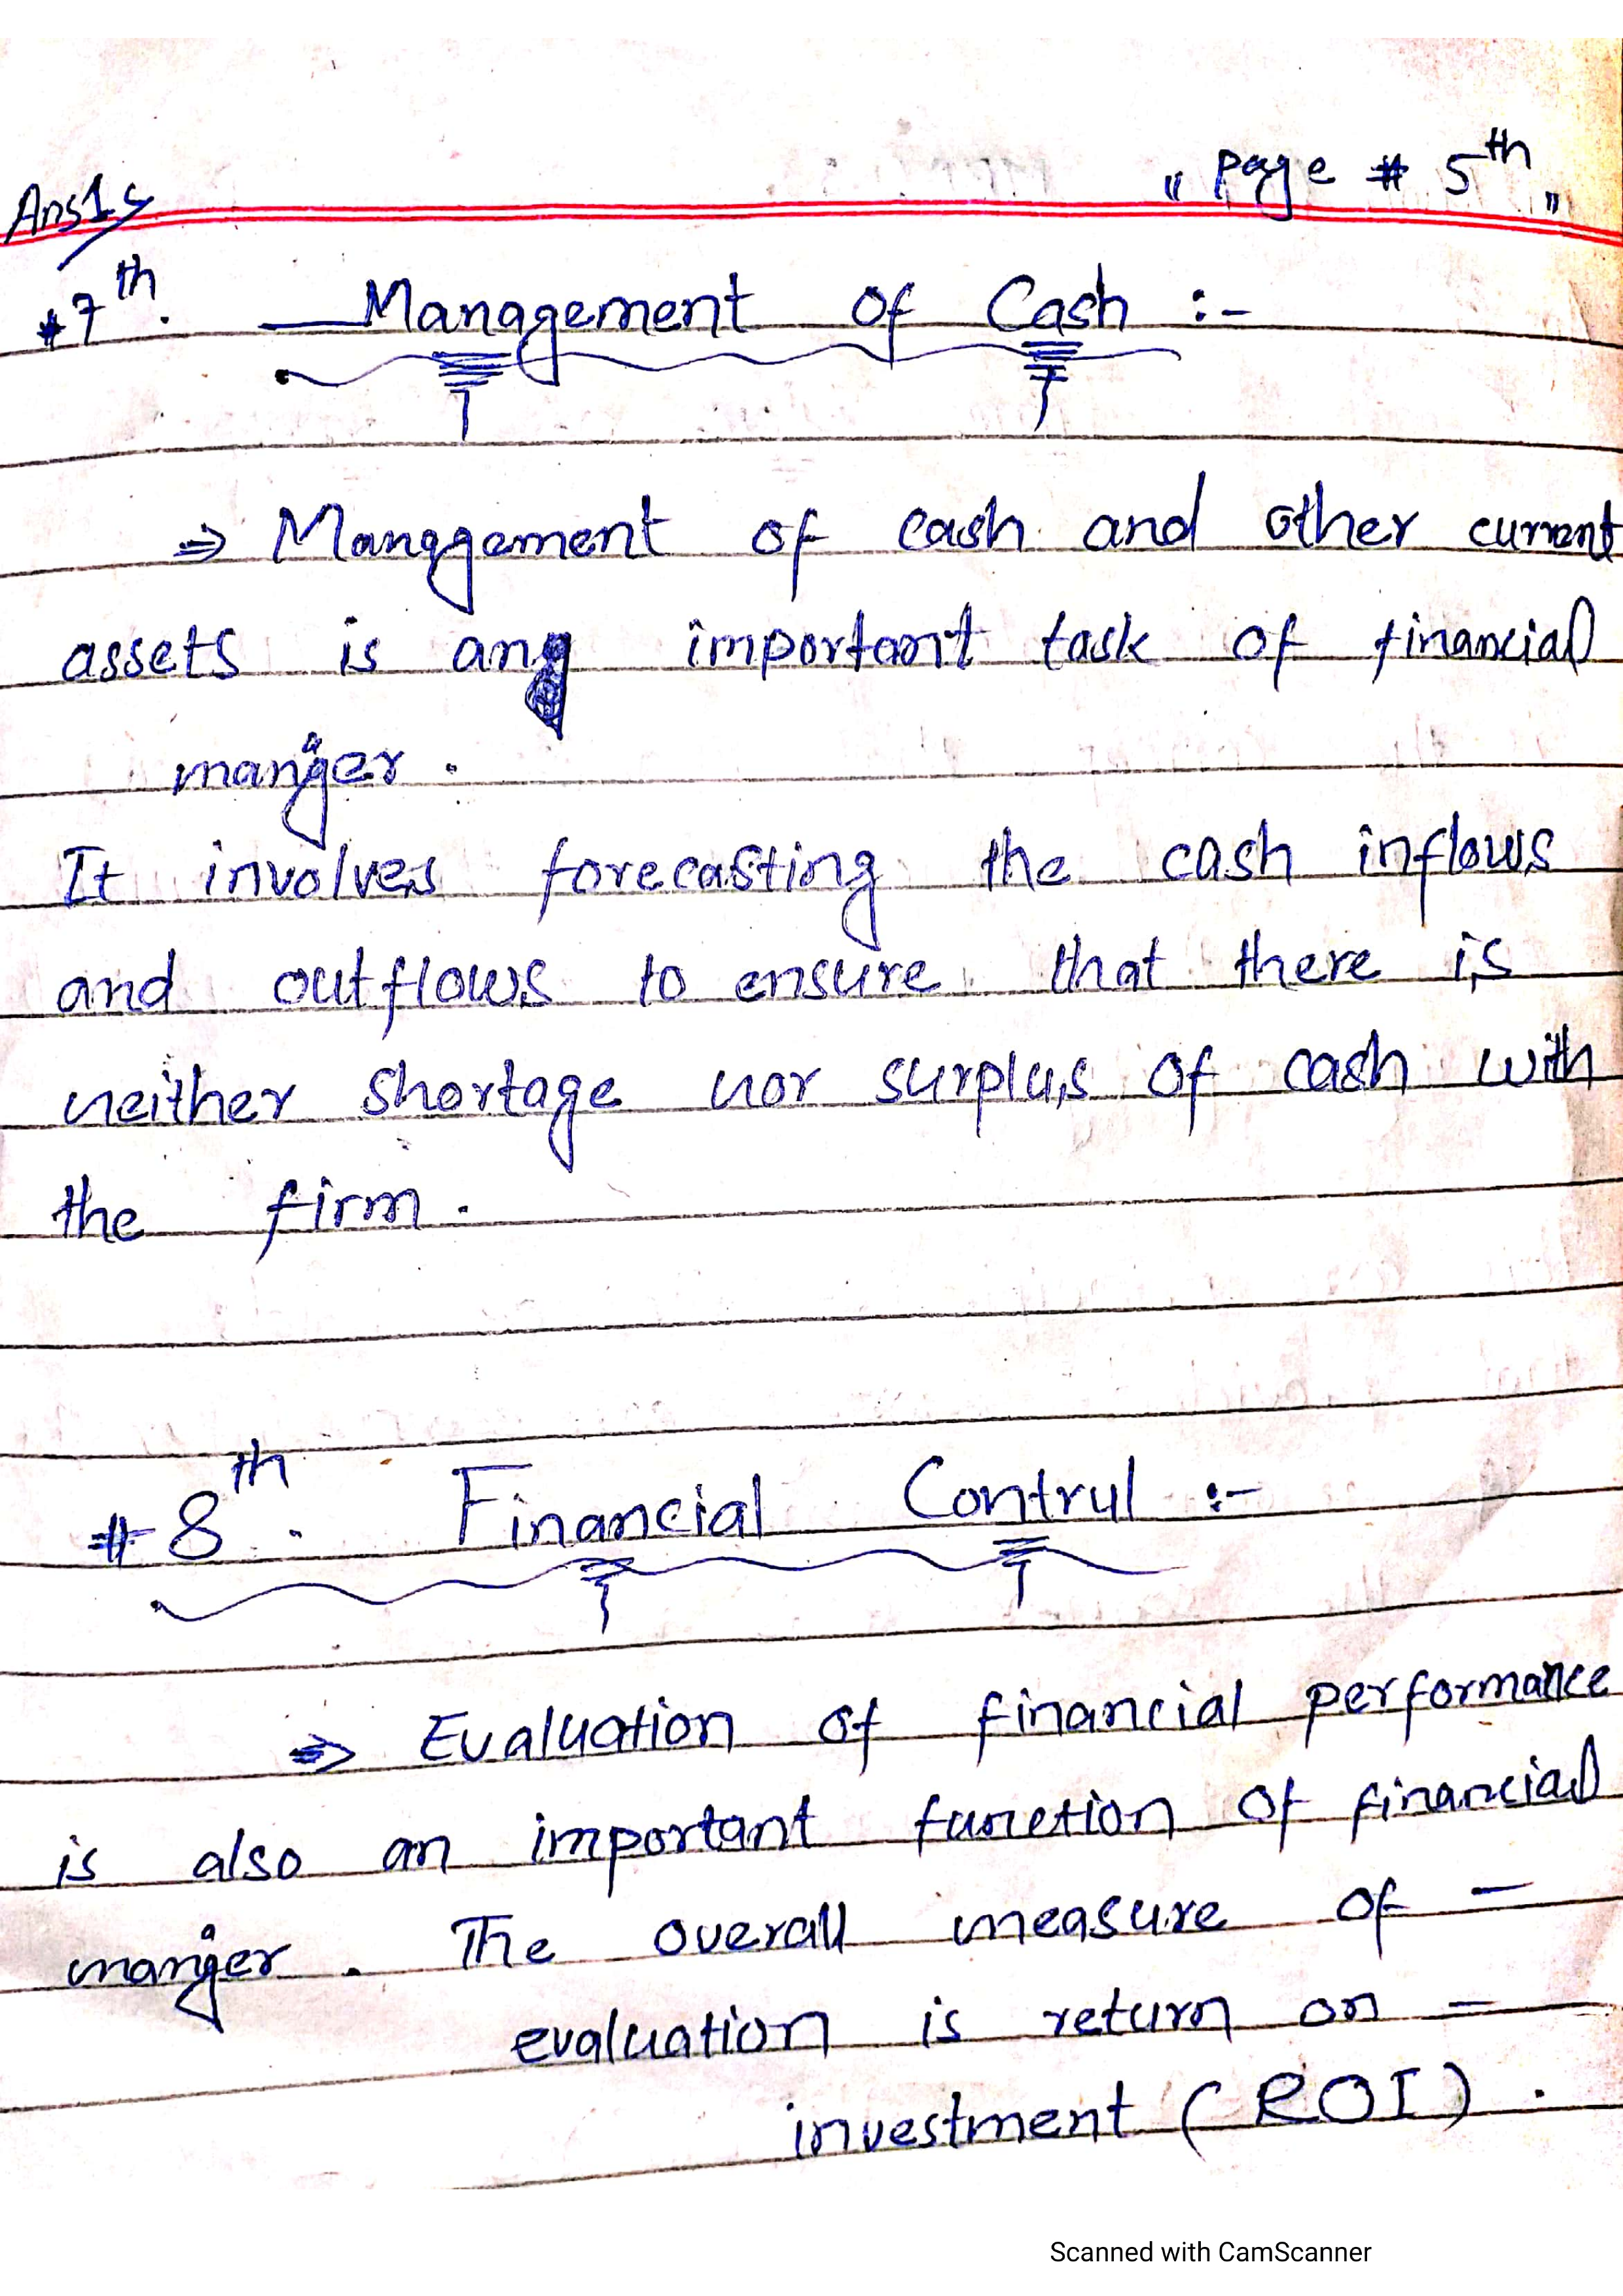 " Page # 5th "
Ans1
#7th. Management Of Cash :-
⇒ Management of cash and other current
assets is an important task of financial
manager.
It involves forecasting the cash inflows
and outflows to ensure that there is
neither shortage nor surplus of cash with
the firm.
# 8th. Financial Control :-
⇒ Evaluation of financial performance
is also an important function of financial
manager. The overall measure of -
evaluation is return on -
investment (ROI).
Scanned with CamScanner